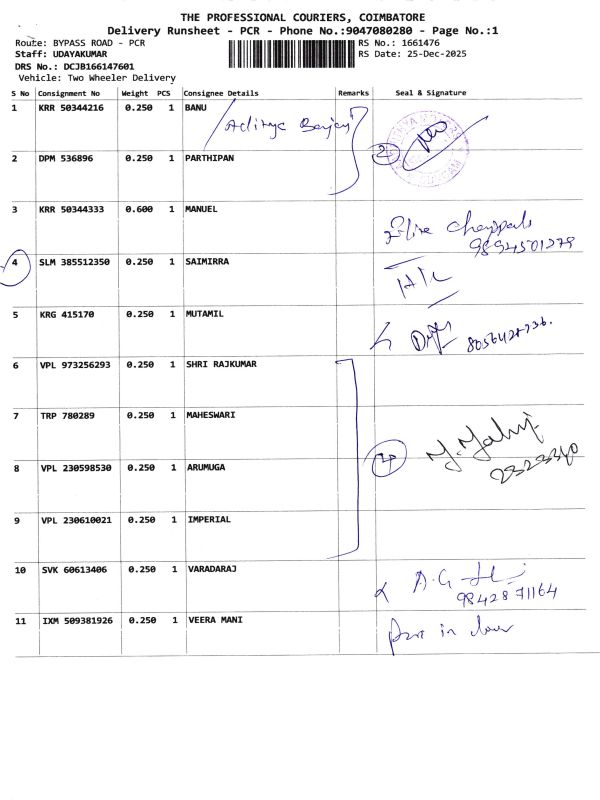 THE PROFESSIONAL COURIERS, COIMBATORE
Delivery Runsheet - PCR - Phone No.:9047080280 - Page No.:1
Route: BYPASS ROAD - PCR
RS No.: 1661476
Staff: UDAYAKUMAR
RS Date: 25-Dec-2025
DRS No.: DCJB166147601
Vehicle: Two Wheeler Delivery
S No Consignment No Weight PCS Consignee Details Remarks Seal & Signature
1 KRR 50344216 0.250 1 BANU
2
2 DPM 536896 0.250 1 PARTHIPAN
3 KRR 50344333 0.600 1 MANUEL
9894501279
4 SLM 385512350 0.250 1 SAIMIRRA
5 KRG 415170 0.250 1 MUTAMIL
6 VPL 973256293 0.250 1 SHRI RAJKUMAR
7 TRP 780289 0.250 1 MAHESWARI
4
8 VPL 230598530 0.250 1 ARUMUGA
9 VPL 230610021 0.250 1 IMPERIAL
10 SVK 60613406 0.250 1 VARADARAJ
9842871164
11 IXM 509381926 0.250 1 VEERA MANI
in door